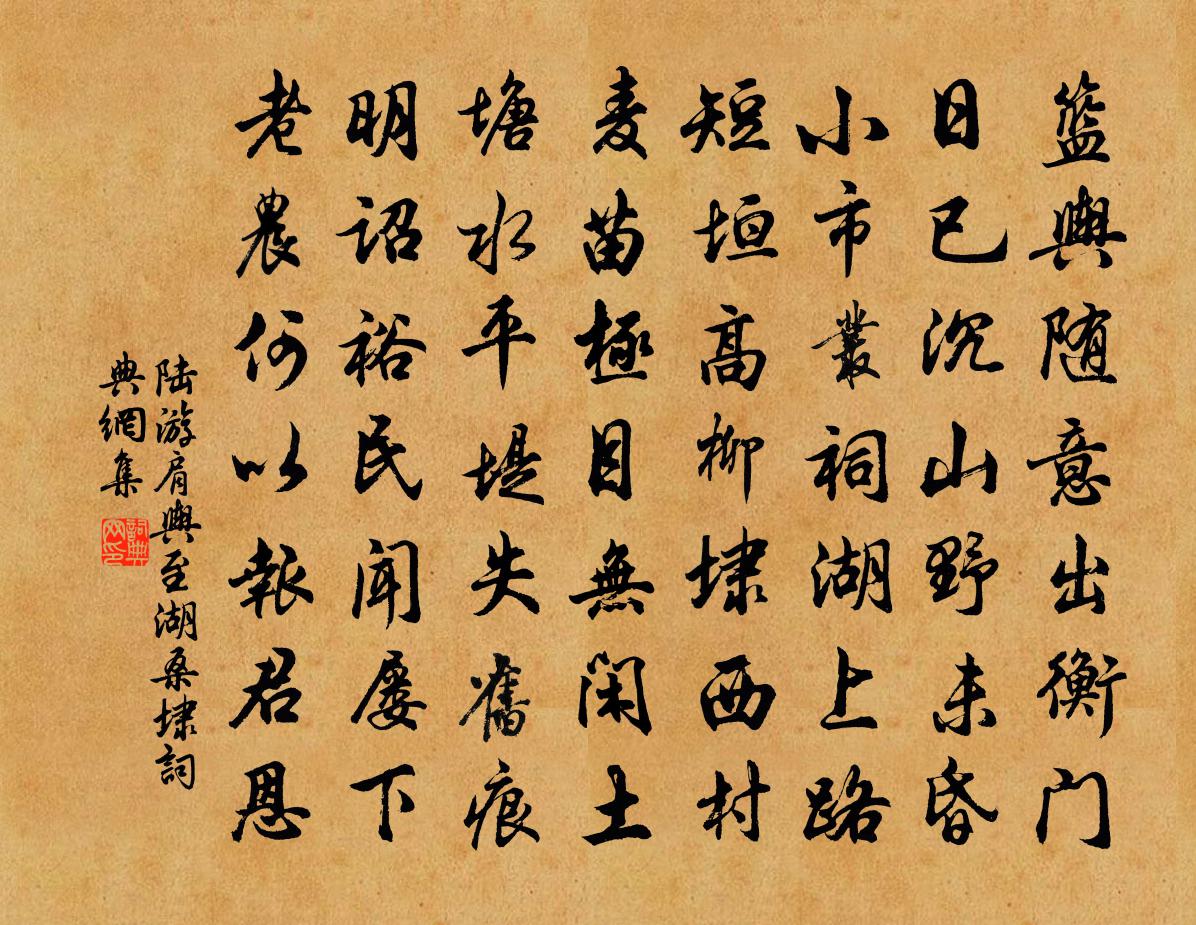 籃輿随意出衡门
日已沉山野未昏
小市叢祠湖上路
短垣高柳埭西村
麦苗極目無闲土
塘水平堤失舊痕
明诏裕民闻屡下
老農何以報君恩
陆游肩輿至湖桑埭詞
典網集
詞典网印